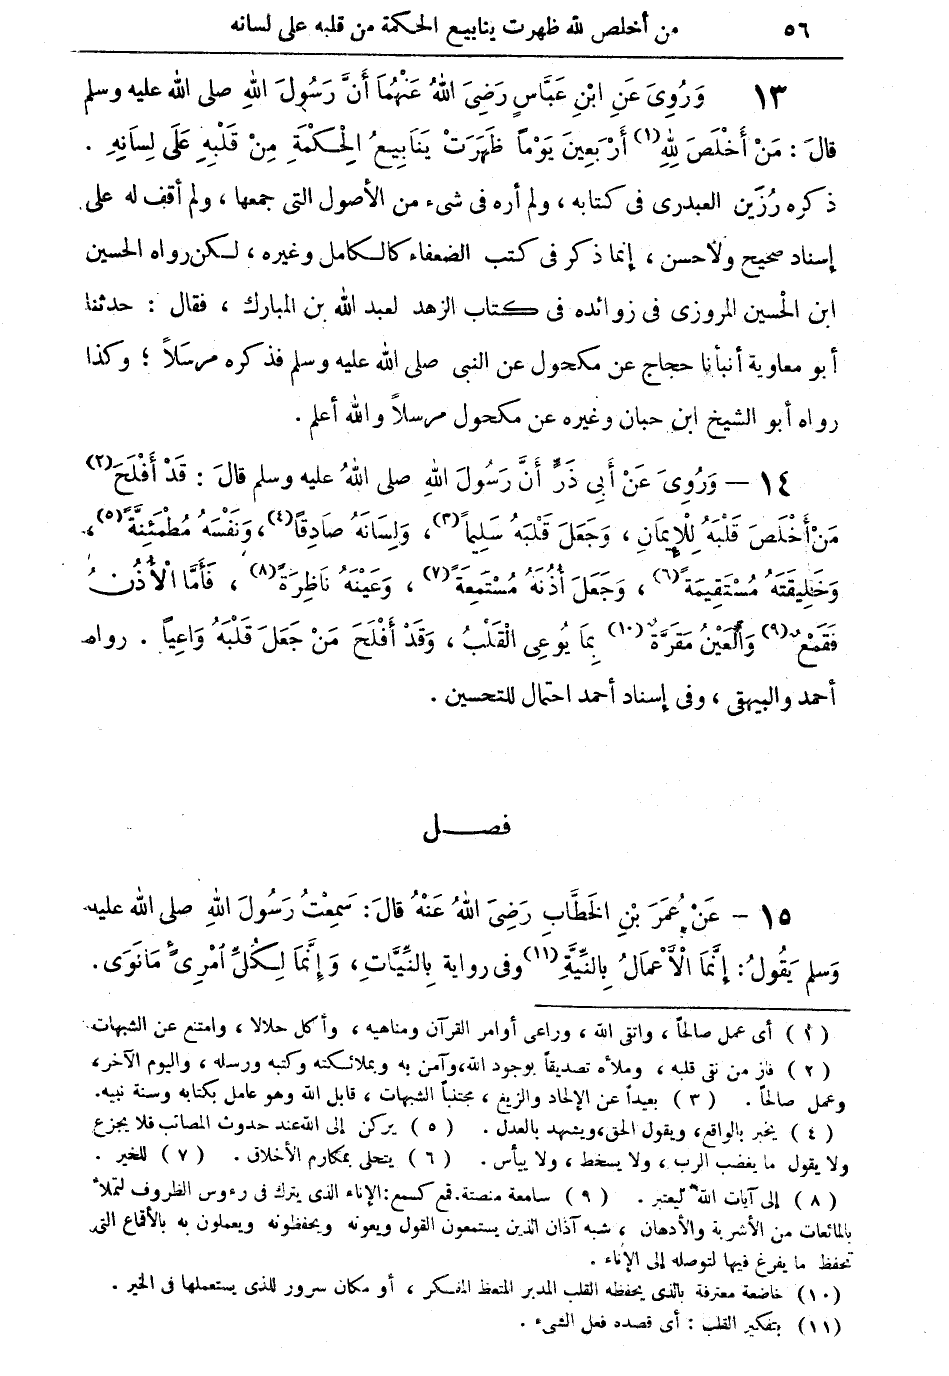 ٥٦ من أخلص لله ظهرت ينابيع الحكمة من قلبه على لسانه
١٣ وَرُوِىَ عَنِ ابْنِ عَبَّاسٍ رَضِىَ اللهُ عَنْهُمَا أَنَّ رَسُولَ اللهِ صلى الله عليه وسلم
قالَ : مَنْ أَخْلَصَ لِلهِ(١) أَرْبَعِينَ يَوْماً ظَهَرَتْ يَنَابِيعُ الْحِكْمَةِ مِنْ قَلْبِهِ عَلَى لِسَانِهِ .
ذكره رُزَين العبدرى فى كتابه ، ولم أره فى شىء من الأصول التى جمعها ، ولم أقف له على
إسناد صحيح ولاحسن ، إنما ذكر فى كتب الضعفاء كالكامل وغيره ، لكن رواه الحسين
ابن الحسين المروزى فى زوائده فى كتاب الزهد لعبد الله بن المبارك ، فقال : حدثنا
أبو معاوية أنبأنا حجاج عن مكحول عن النبى صلى الله عليه وسلم فذكره مرسَلاً ؛ وكذا
رواه أبو الشيخ ابن حبان وغيره عن مكحول مرسلاً والله أعلم .
١٤ – وَرُوِىَ عَنْ أَبِى ذَرٍّ أَنَّ رَسُولَ اللهِ صلى اللهُ عليه وسلم قالَ : قَدْ أَفْلَحَ(٢)
مَنْ أَخْلَصَ قَلْبَهُ لِلْإِيمَانِ ، وَجَعَلَ قَلْبَهُ سَلِيماً(٣)، وَلِسَانَهُ صَادِقاً(٤)، وَنَفْسَهُ مُطْمَئِنَّةً(٥)،
وَخَلِيقَتَهُ مُسْتَقِيمَةً(٦) ، وَجَعَلَ أُذُنَهُ مُسْتَمِعَةً(٧) ، وَعَيْنَهُ نَاظِرَةً(٨) ، فَأَمَّا الْأُذُنُ
فَقَمْعٌ(٩) وَالْعَيْنُ مَقَرَّةٌ(١٠) بِمَا يُوعِى الْقَلْبُ ، وَقَدْ أَفْلَحَ مَنْ جَعَلَ قَلْبَهُ وَاعِياً . رواه
أحمد والبيهقى ، وفى إسناد أحمد احتمال للتحسين .
فصل
١٥ – عَنْ عُمَرَ بْنِ الْخَطَّابِ رَضِىَ اللهُ عَنْهُ قالَ : سَمِعْتُ رَسُولَ اللهِ صلى الله عليه
وَسلم يَقُولُ : إِنَّمَا الْأَعْمَالُ بِالنِّيَّةِ(١١) وفى رواية بِالنِّيَّاتِ ، وَإِنَّمَا لِكُلِّ امْرِىءٍ مَانَوَى .
(١) أى عمل صالحاً ، واتقى الله ، وراعى أوامر القرآن ومناهيه ، وأكل حلالا ، وامتنع عن الشبهات
(٢) فاز من نقى قلبه ، وملأه تصديقاً بوجود الله، وآمن به وبملائكته وكتبه ورسله ، واليوم الآخر،
وعمل صالحاً . (٣) بعيداً عن الإلحاد والزيغ ، مجتنباً الشبهات ، قابل الله وهو عامل بكتابه وسنة نبيه.
(٤) يخبر بالواقع، ويقول الحق، ويشهد بالعدل . (٥) يركن إلى الله عند حدوث المصائب فلا يجزع
ولا يقول ما يغضب الرب ، ولا يسخط ، ولا ييأس . (٦) يتحلى بمكارم الأخلاق . (٧) للخير .
(٨) إلى آيات الله ليعتبر . (٩) سامعة منصتة. قمع كسمع: الإناء الذى يترك فى رءوس الظروف لتملأ
بالمائعات من الأشربة والأدهان ، شبه آذان الذين يستمعون القول ويعونه ويحفظونه ويعملون به بالأقماع التى
تحفظ ما يفرغ فيها لتوصله إلى الإناء .
(١٠) خاضعة معترفة بالذى يحفظه القلب المدبر المتعظ المفكر ، أو مكان سرور للذى يستعملها فى الخير .
(١١) بتفكير القلب : أى قصده فعل الشىء .